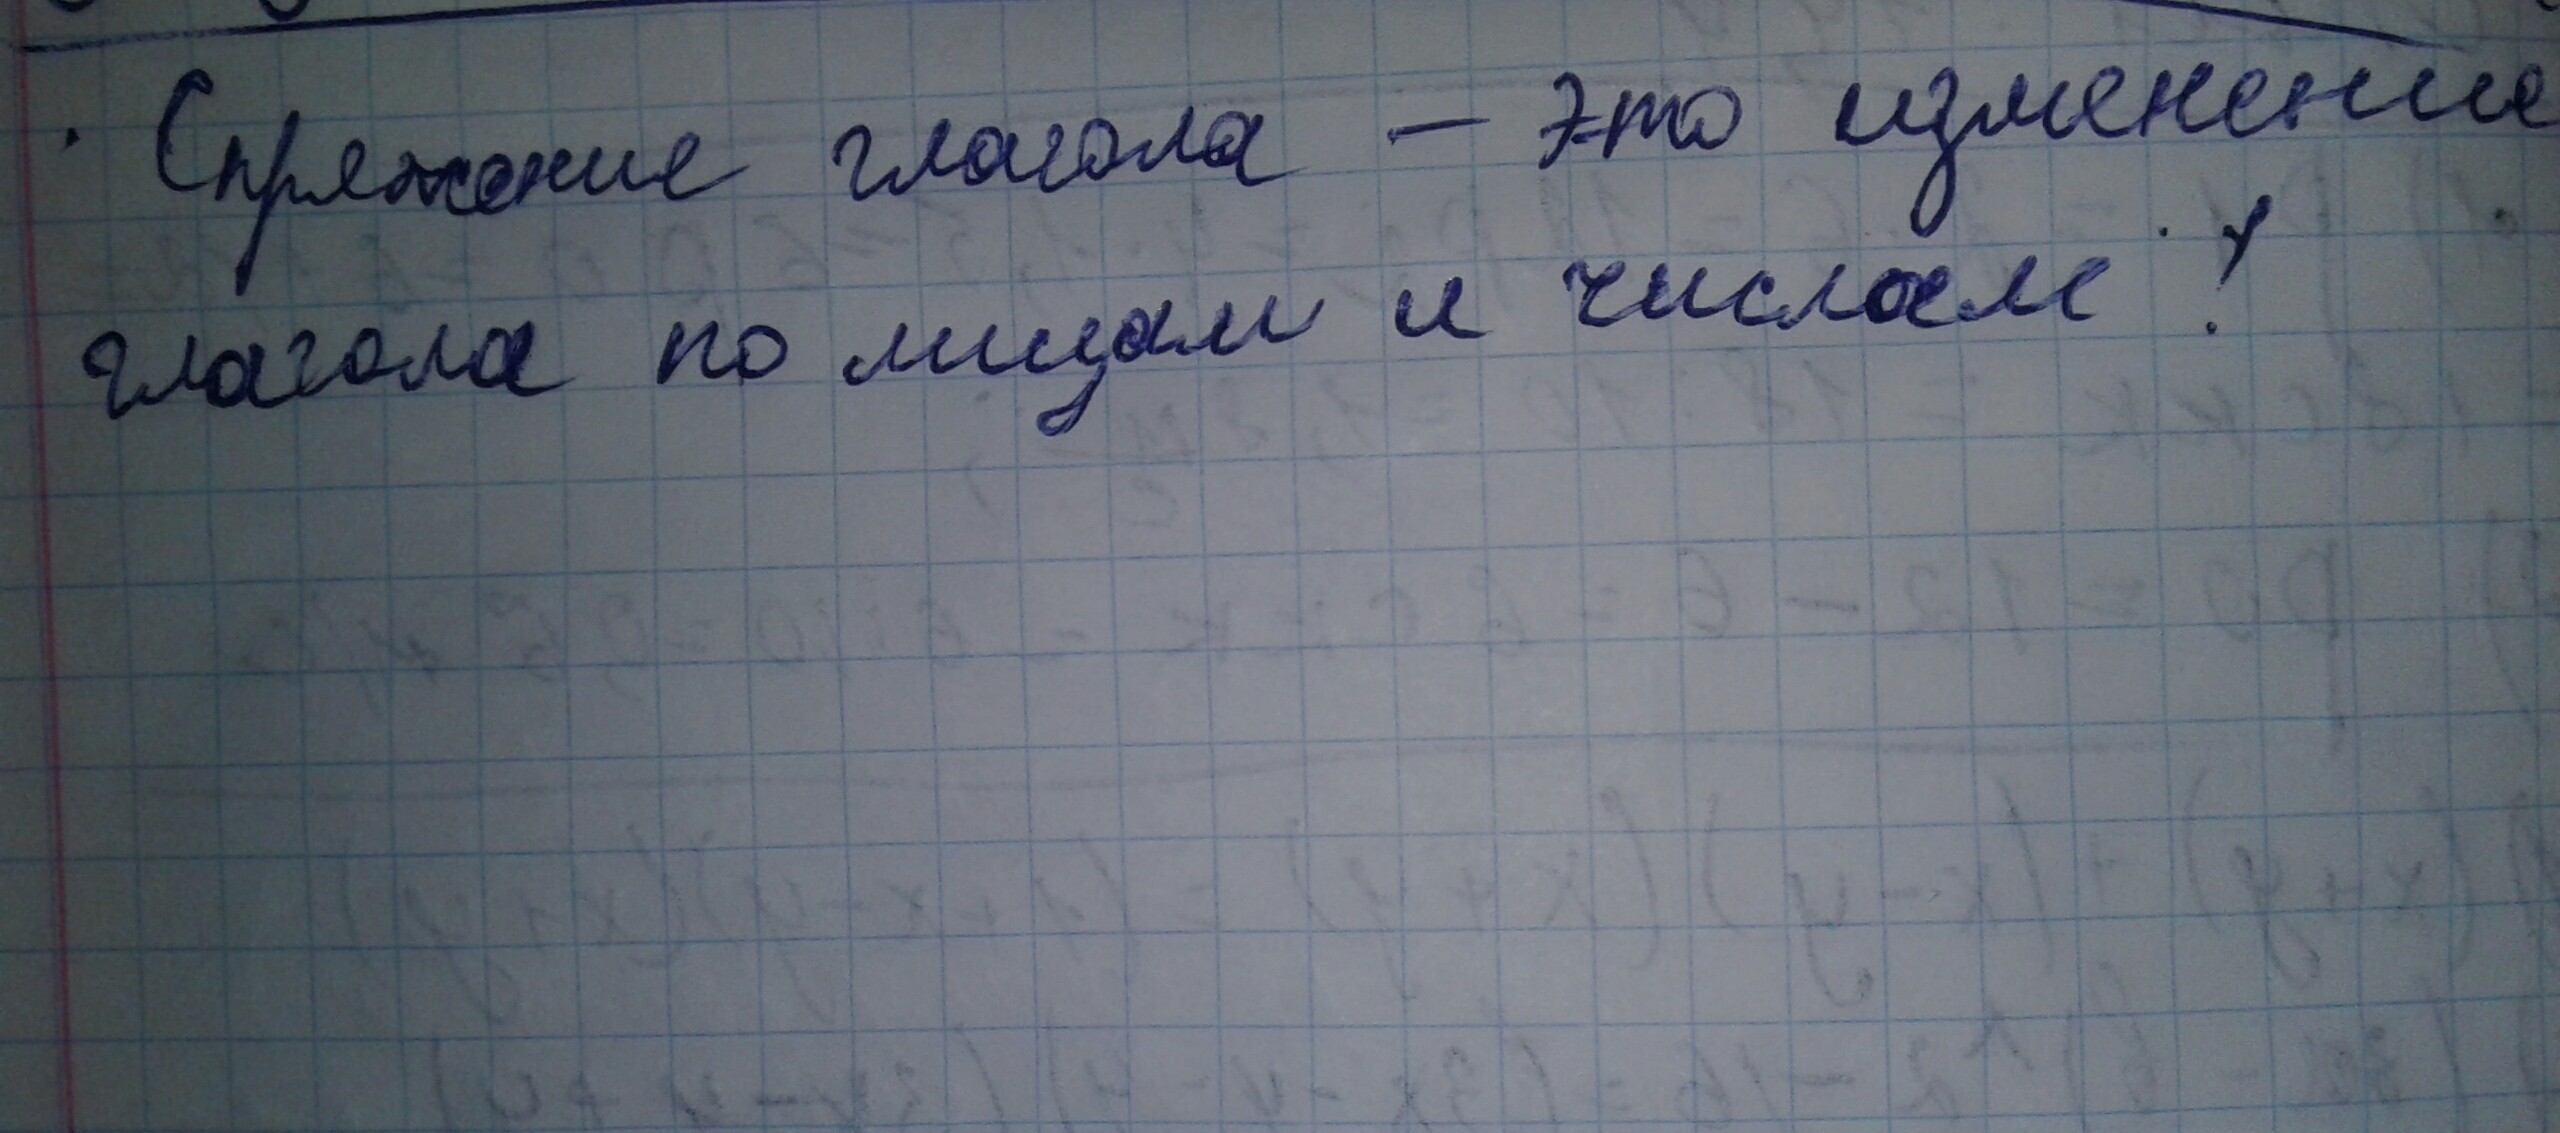 Спряжение глагола – это изменение
глагола по лицам и числам!